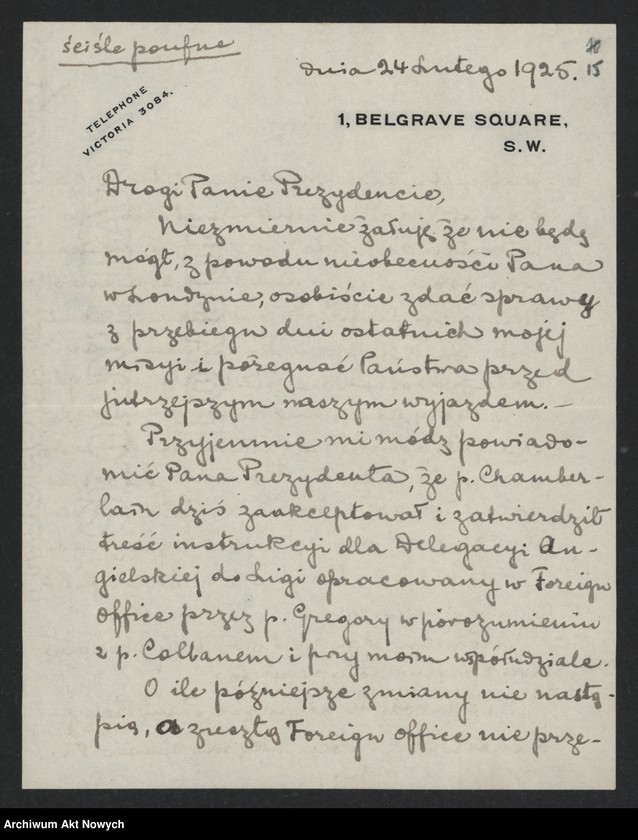 ściśle poufne
dnia 24 Lutego 1925. 15
TELEPHONE
VICTORIA 3084.
1, BELGRAVE SQUARE,
S.W.
Drogi Panie Prezydencie,
Niezmiernie żałuję że nie będę
mógł, z powodu nieobecności Pana
w Londynie, osobiście zdać sprawy
z przebiegu dni ostatnich mojej
misyi i pożegnać Państwa przed
jutrzejszym naszym wyjazdem. —
Przyjemnie mi módz powiado-
mić Pana Prezydenta, że p. Chamber-
lain dziś zaakceptował i zatwierdził
treść instrukcyi dla Delegacyi An-
gielskiej do Ligi opracowany w Foreign
Office przez p. Gregory w porozumieniu
z p. Colbanem i przy moim współudziale.
O ile późniejsze zmiany nie nastą-
pią, a zresztą Foreign Office nie prze-
Archiwum Akt Nowych